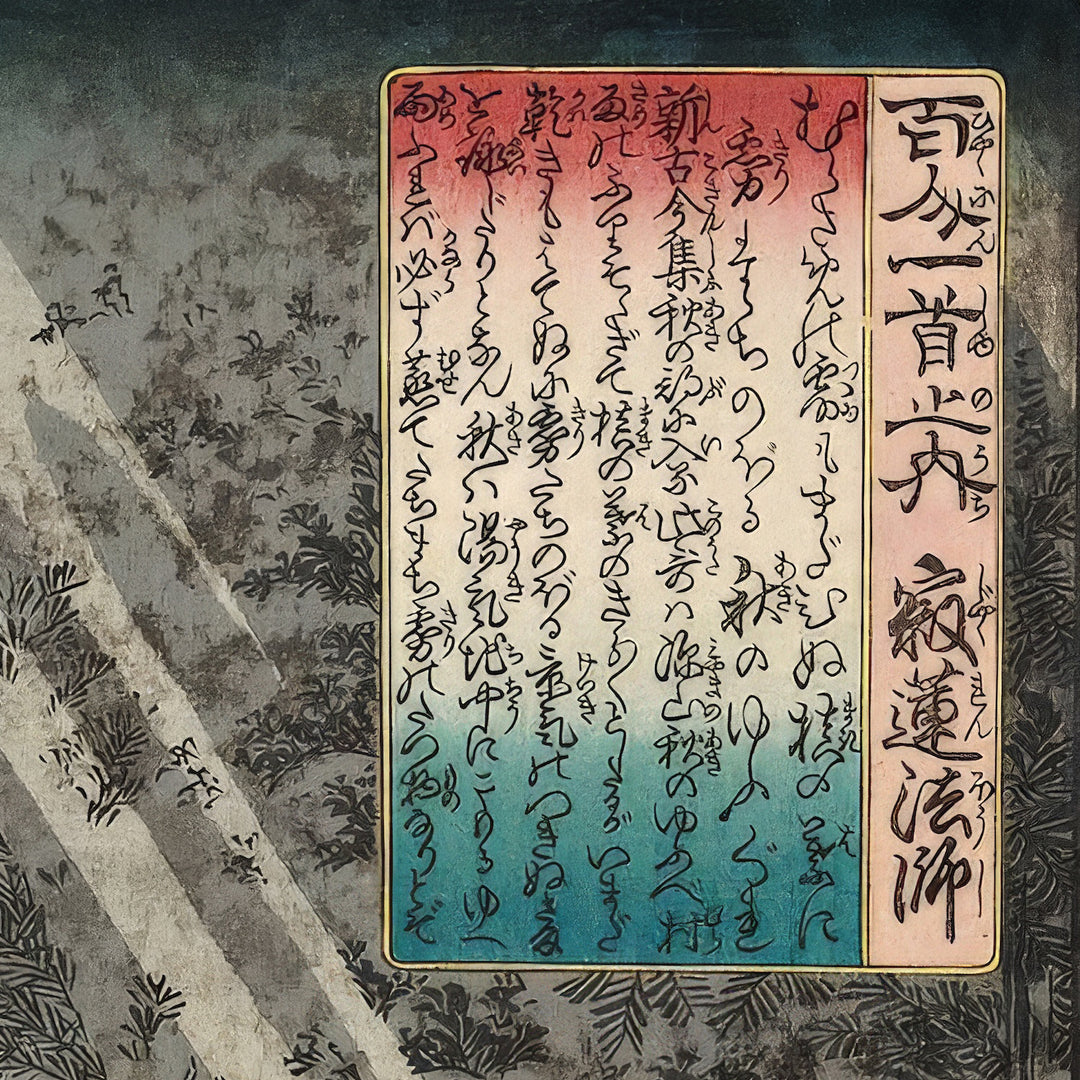 百人一首之内 寂蓮法師
むらさめの露もまだひぬ槙の葉に
霧たちのぼる秋のゆふぐれ
新古今集秋の部に入る此哥ハ深山秋のゆふべ村
雨のふりそゝぎて槙の葉のきら〱としたるがいまだ
乾きもはてぬに霧たちのぼる景気のつきぬさま
を詠じたりとなん秋ハ湯気地中にこもるゆへ
雨ふれバ必ず蒸てたちまち霧のたつ物なりとぞ